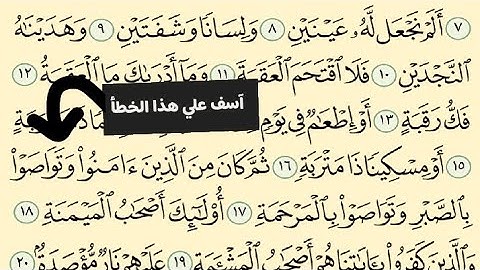 ٧ أَلَمْ نَجْعَل لَّهُۥ عَيْنَيْنِ ٨ وَلِسَانًا وَشَفَتَيْنِ ٩ وَهَدَيْنَٰهُ
ٱلنَّجْدَيْنِ ١٠ فَلَا ٱقْتَحَمَ ٱلْعَقَبَةَ ١١ وَمَآ أَدْرَىٰكَ مَا ٱلْعَقَبَةُ ١٢
آسف علي هذا الخطأ
فَكُّ رَقَبَةٍ ١٣ أَوْ إِطْعَٰمٌ فِى يَوْمٍ
١٥ أَوْ مِسْكِينًا ذَا مَتْرَبَةٍ ١٦ ثُمَّ كَانَ مِنَ ٱلَّذِينَ ءَامَنُوا۟ وَتَوَاصَوْا۟
بِٱلصَّبْرِ وَتَوَاصَوْا۟ بِٱلْمَرْحَمَةِ ١٧ أُو۟لَٰٓئِكَ أَصْحَٰبُ ٱلْمَيْمَنَةِ ١٨
وَٱلَّذِينَ كَفَرُوا۟ بِـَٔايَٰتِنَا هُمْ أَصْحَٰبُ ٱلْمَشْـَٔمَةِ ١٩ عَلَيْهِمْ نَارٌ مُّؤْصَدَةٌۢ ٢٠